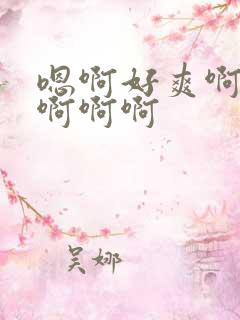 嗯啊好爽啊
啊啊啊
吴娜